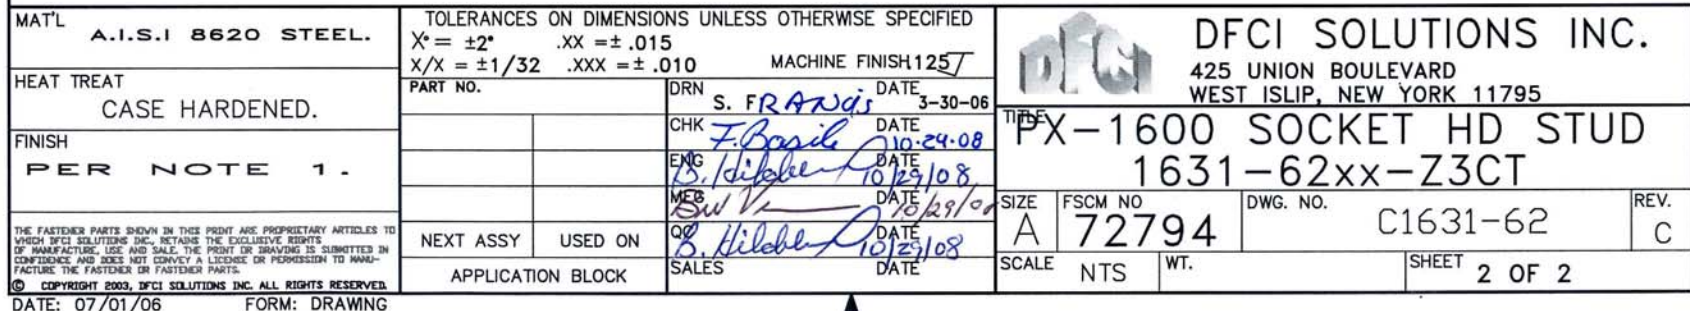 MAT'L
A.I.S.I 8620 STEEL.
HEAT TREAT
CASE HARDENED.
FINISH
PER NOTE 1.
THE FASTENER PARTS SHOWN IN THIS PRINT ARE PROPRIETARY ARTICLES TO
WHICH DFCI SOLUTIONS INC., RETAINS THE EXCLUSIVE RIGHTS
OF MANUFACTURE, USE AND SALE. THE PRINT OR DRAWING IS SUBMITTED IN
CONFIDENCE AND DOES NOT CONVEY A LICENSE OR PERMISSION TO MANU-
FACTURE THE FASTENER OR FASTENER PARTS.
© COPYRIGHT 2003, DFCI SOLUTIONS INC. ALL RIGHTS RESERVED.
DATE: 07/01/06 FORM: DRAWING
TOLERANCES ON DIMENSIONS UNLESS OTHERWISE SPECIFIED
X° = ±2° .XX = ± .015
X/X = ±1/32 .XXX = ± .010 MACHINE FINISH 125
PART NO.
NEXT ASSY USED ON
APPLICATION BLOCK
DRN S. FRANCIS DATE 3-30-06
CHK F. Basile DATE 10-24-08
ENG B. DATE 10/29/08
MFG DATE 10/29/08
QC B. DATE 10/29/08
SALES DATE
DFCI
DFCI SOLUTIONS INC.
425 UNION BOULEVARD
WEST ISLIP, NEW YORK 11795
TITLE
PX-1600 SOCKET HD STUD
1631-62xx-Z3CT
SIZE A FSCM NO 72794 DWG. NO. C1631-62 REV. C
SCALE NTS WT. SHEET 2 OF 2